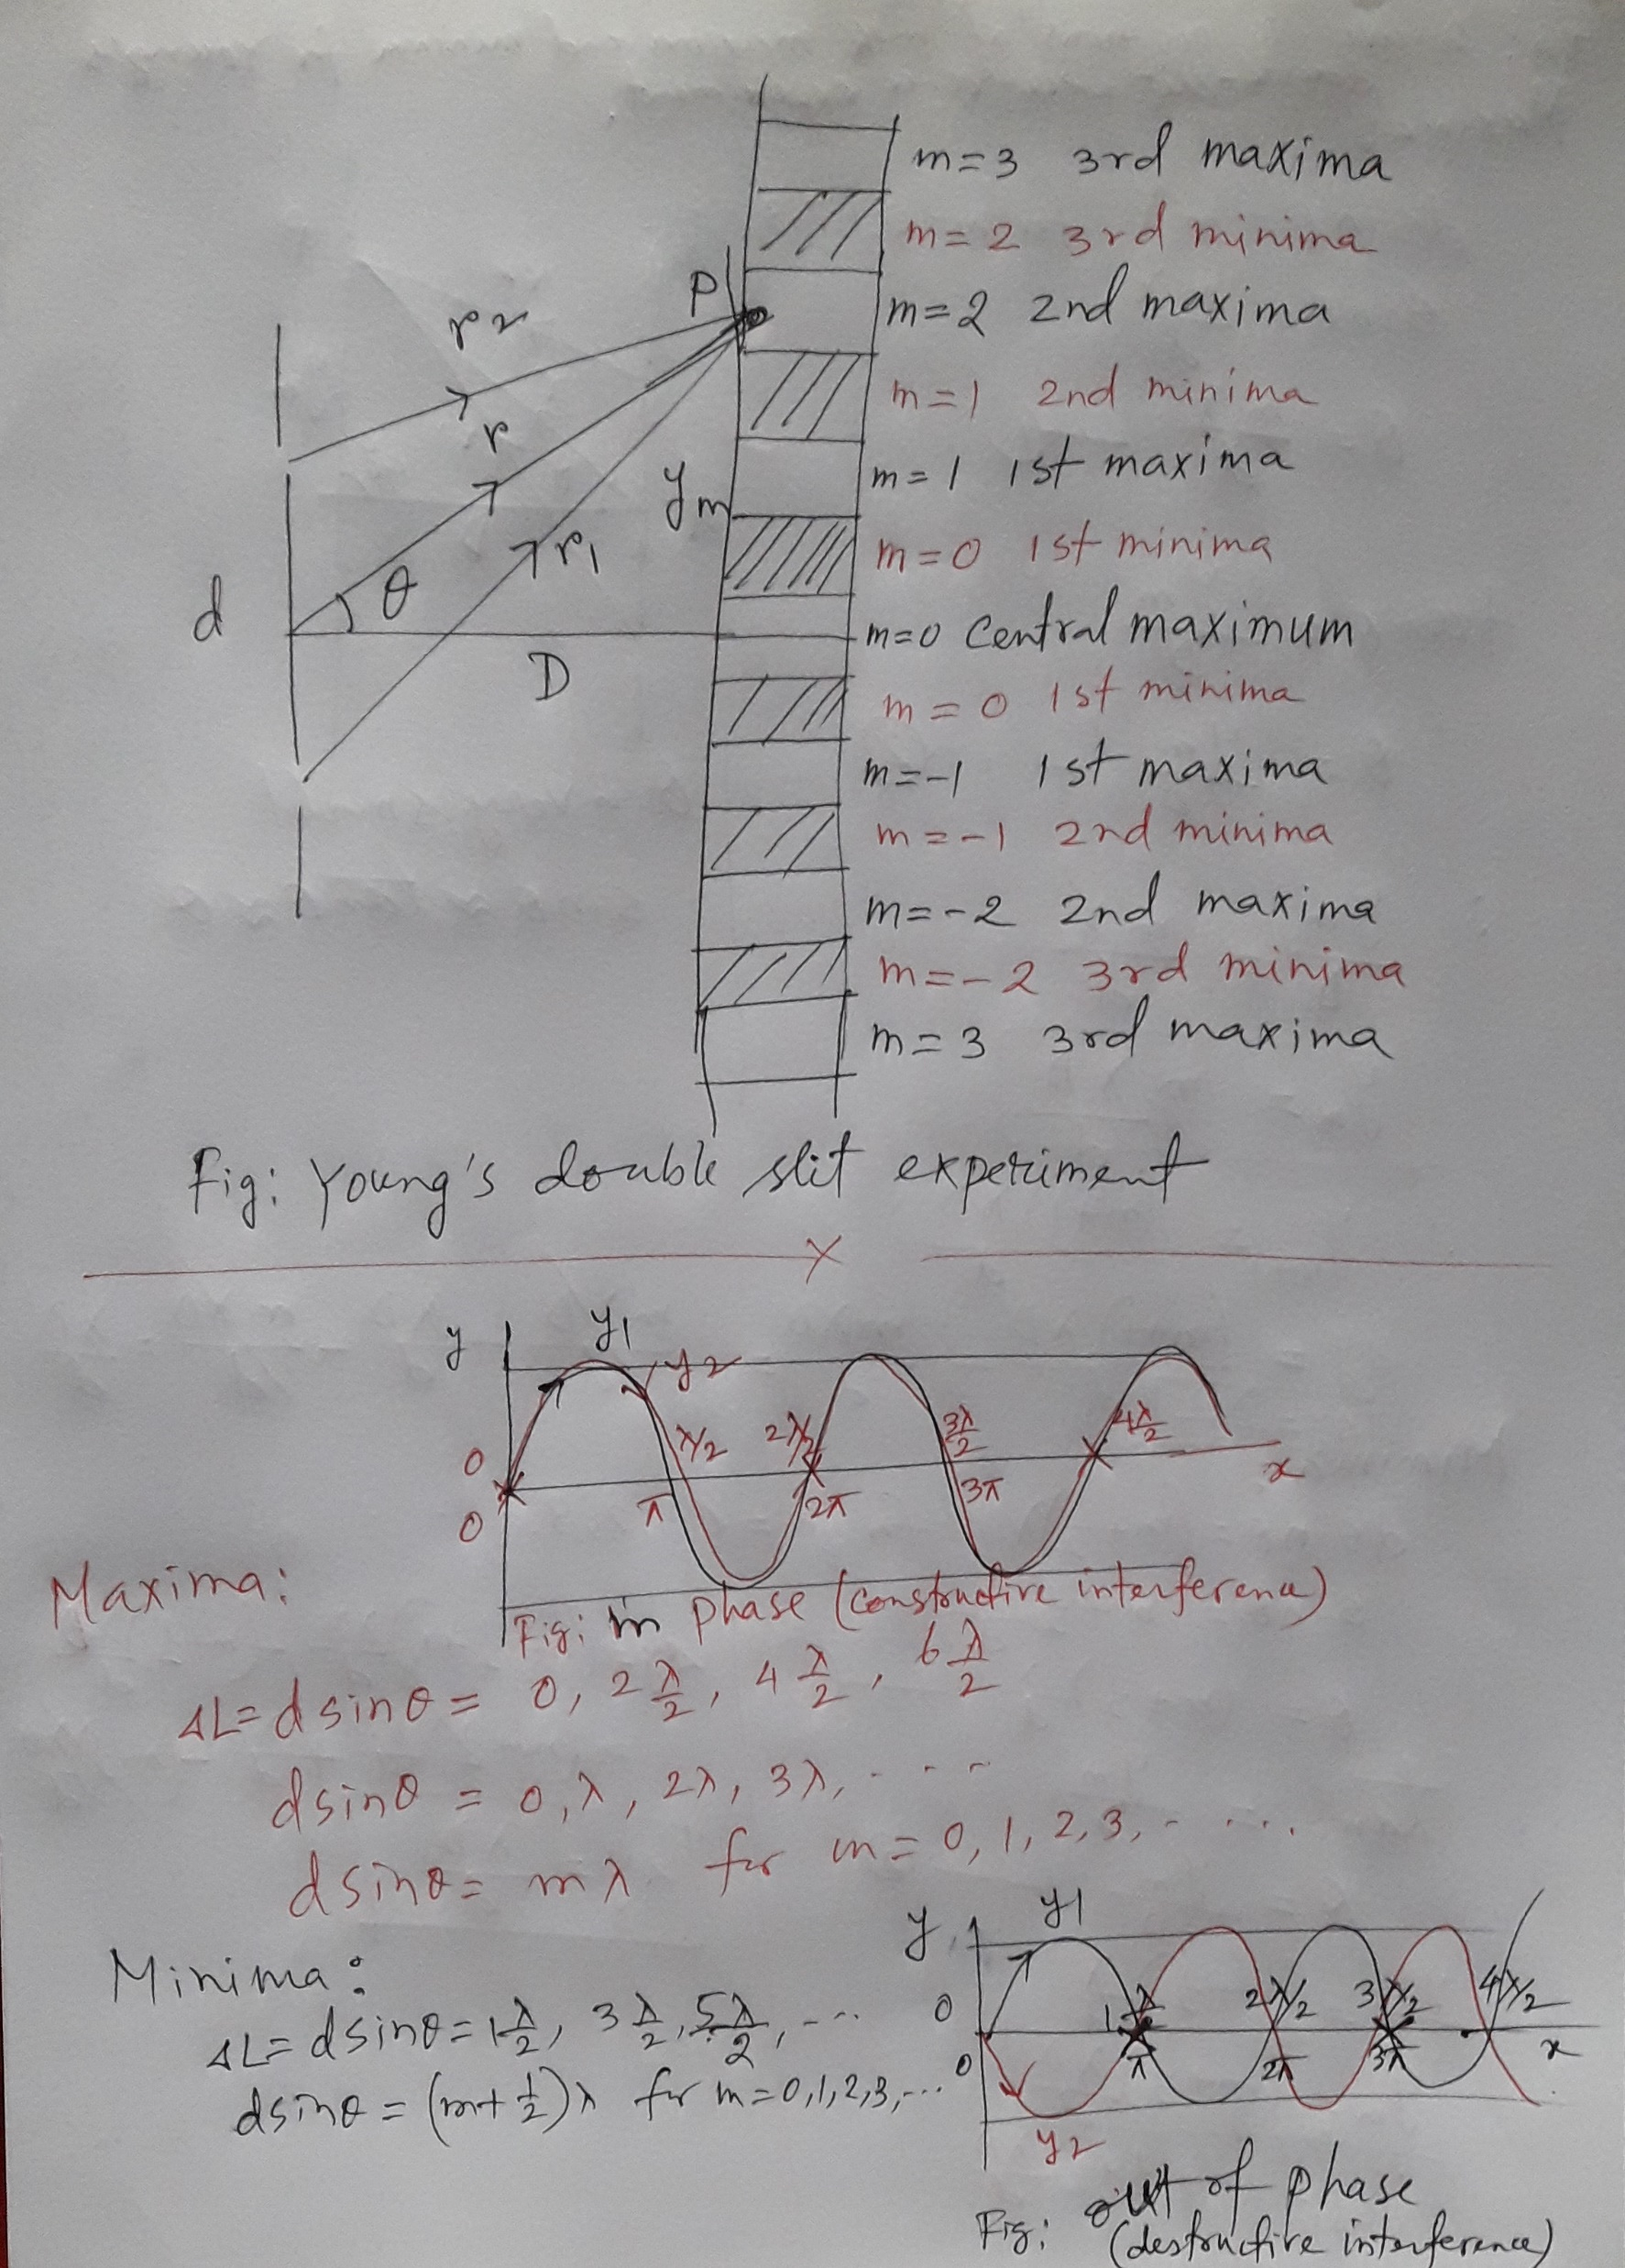 m=3 3rd maxima
m=2 3rd minima
P
m=2 2nd maxima
r2
m=1 2nd minima
r
m=1 1st maxima
ym
m=0 1st minima
r1
θ
d
m=0 Central maximum
D
m=0 1st minima
m=-1 1st maxima
m=-1 2nd minima
m=-2 2nd maxima
m=-2 3rd minima
m=3 3rd maxima
Fig: Young's double slit experiment
x
y y1
y2
0 λ/2 2λ/2 3λ/2 4λ/2
x
0 π 2π 3π
Maxima:
Fig: in phase (constructive interference)
ΔL= d sinθ = 0, 2 λ/2, 4 λ/2, 6 λ/2
d sinθ = 0, λ, 2λ, 3λ, ----
d sinθ = mλ for m=0, 1, 2, 3, - ....
y y1
Minima:
0 1 λ/2 2λ/2 3λ/2 4λ/2
ΔL= d sinθ = 1 λ/2, 3 λ/2, 5λ/2, ---
0 π 2π 3π x
d sinθ = (m+ 1/2)λ for m=0,1,2,3,---
y2
Fig: out of phase
(destructive interference)